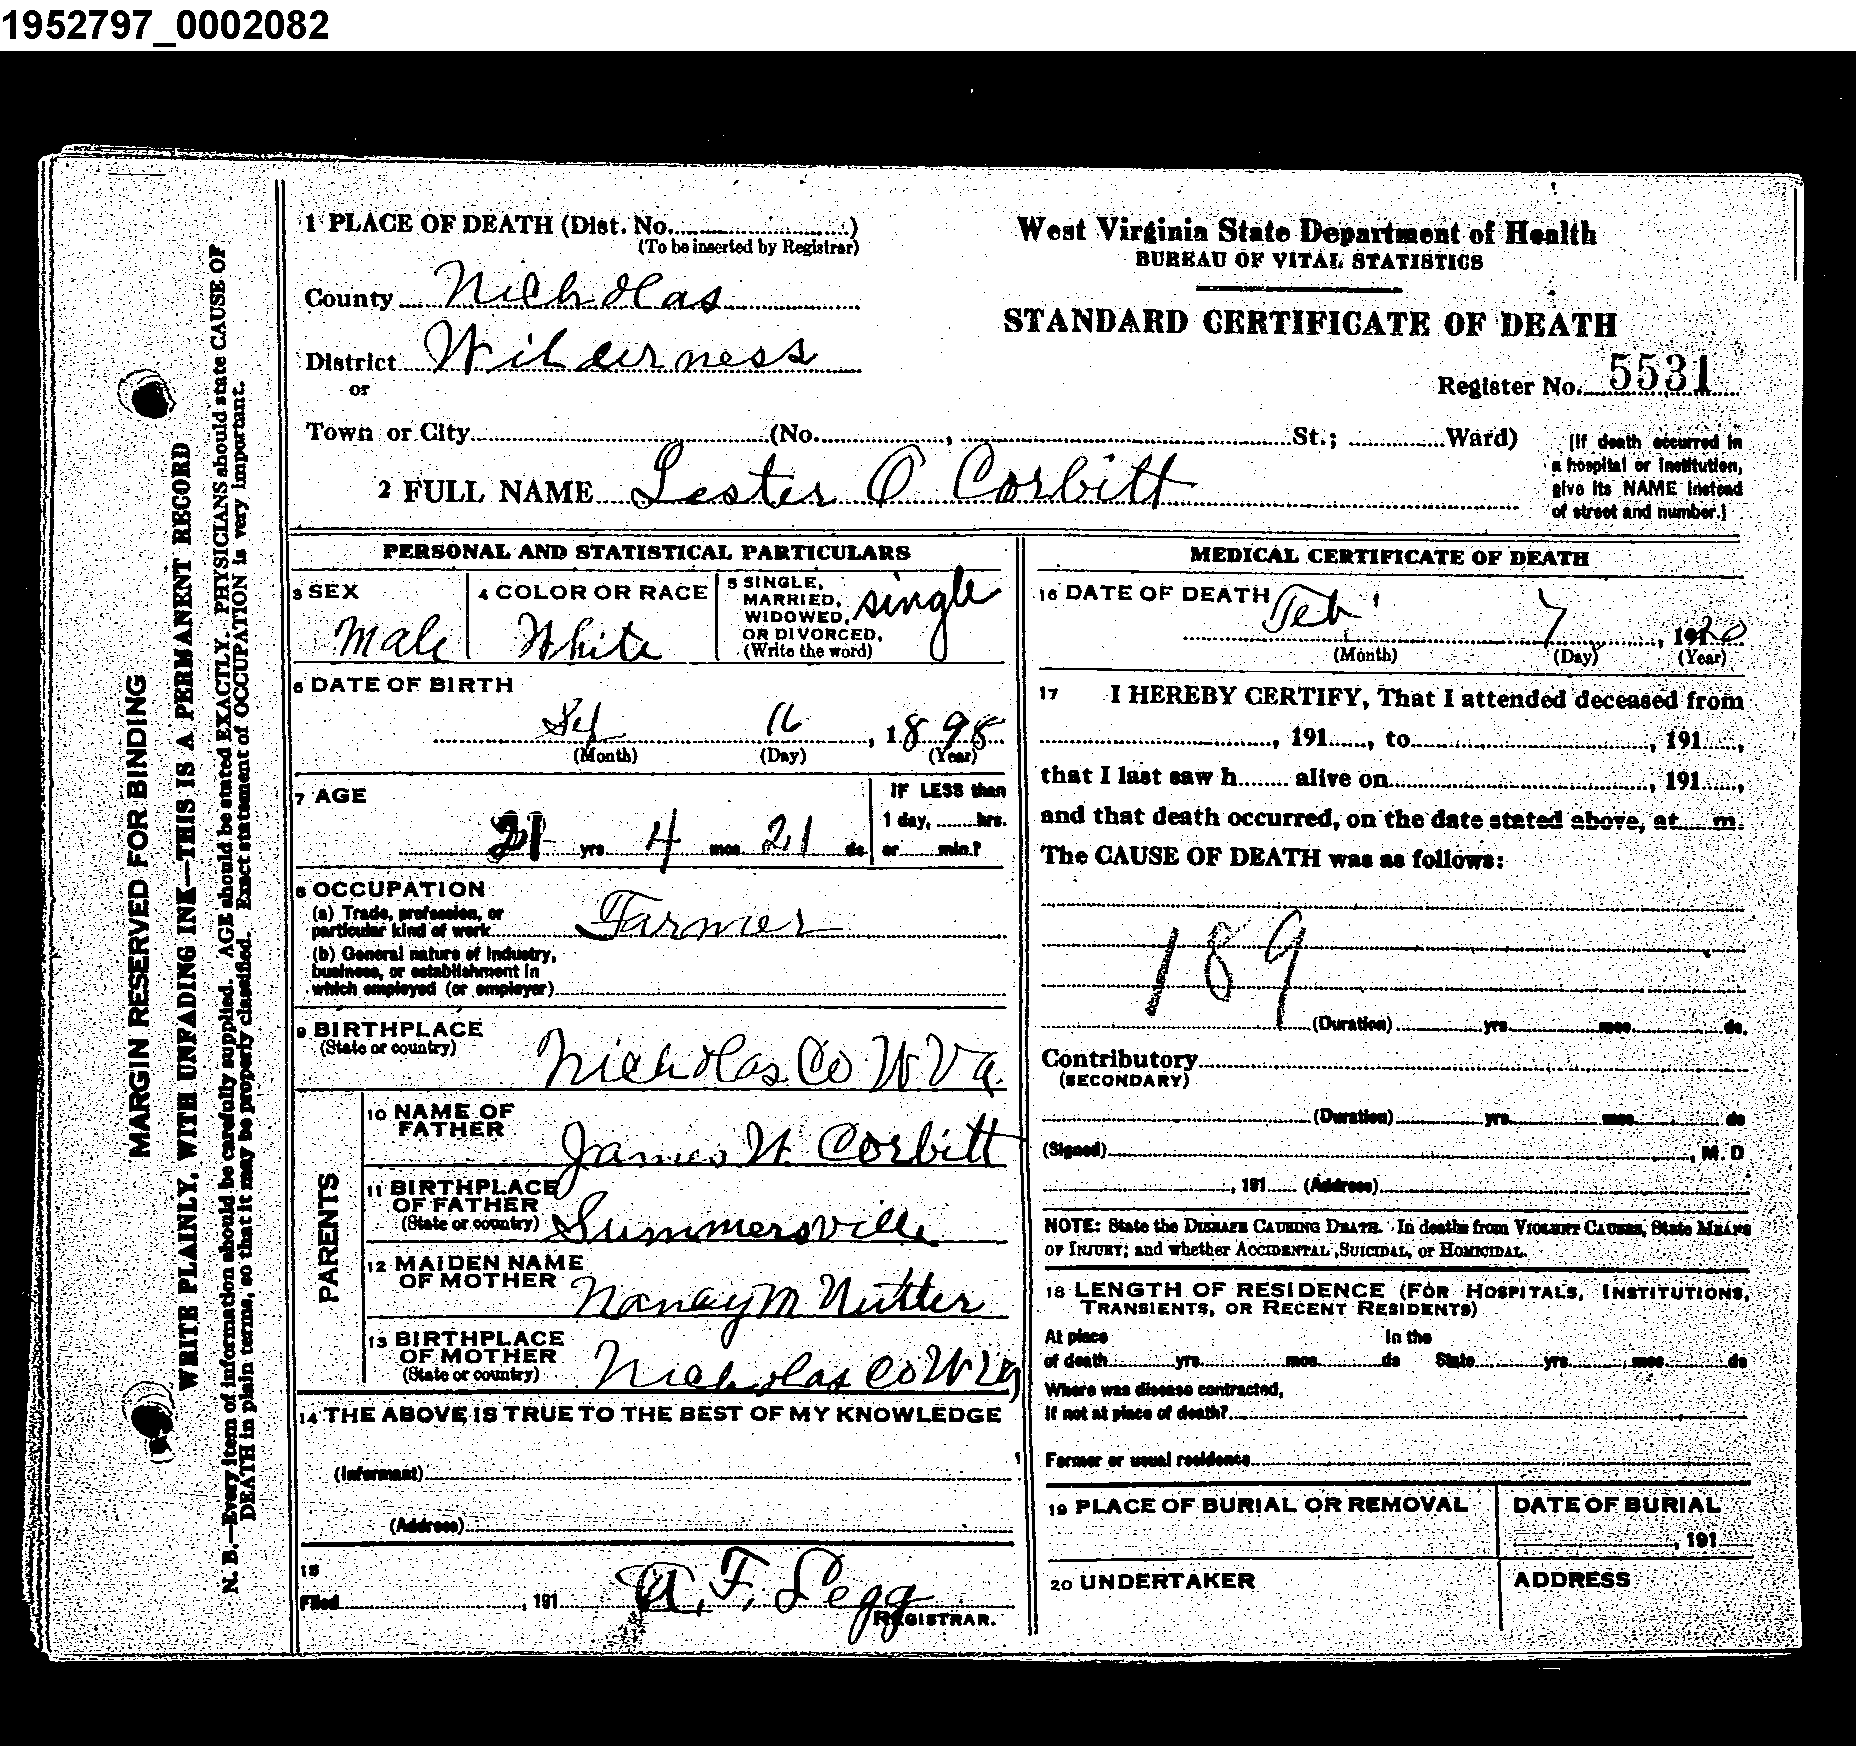 1952797_0002082
MARGIN RESERVED FOR BINDING
WRITE PLAINLY, WITH UNFADING INK—THIS IS A PERMANENT RECORD
N. B.—Every item of information should be carefully supplied. AGE should be stated EXACTLY. PHYSICIANS should state CAUSE OF
DEATH in plain terms, so that it may be properly classified. Exact statement of OCCUPATION is very important.
1 PLACE OF DEATH (Dist. No. )
(To be inserted by Registrar)
County Nicholas
District Wilderness
or
Town or City (No. , St.; Ward)
West Virginia State Department of Health
BUREAU OF VITAL STATISTICS
STANDARD CERTIFICATE OF DEATH
Register No. 5531
[If death occurred in
a hospital or institution,
give its NAME instead
of street and number.]
2 FULL NAME Lester O Corbitt
PERSONAL AND STATISTICAL PARTICULARS
3 SEX
Male
4 COLOR OR RACE
White
5 SINGLE,
MARRIED,
WIDOWED,
OR DIVORCED,
(Write the word)
single
6 DATE OF BIRTH
16, 1898
(Month) (Day) (Year)
7 AGE
21 yrs 4 mos 21 ds
IF LESS than
1 day, hrs.
or min.?
8 OCCUPATION
(a) Trade, profession, or
particular kind of work Farmer
(b) General nature of industry,
business, or establishment in
which employed (or employer)
9 BIRTHPLACE
(State or country)
Nicholas Co W Va.
PARENTS
10 NAME OF
FATHER
James W. Corbitt
11 BIRTHPLACE
OF FATHER
(State or country) Summersville
12 MAIDEN NAME
OF MOTHER Nancy M Nutter
13 BIRTHPLACE
OF MOTHER
(State or country) Nicholas Co W Va
14 THE ABOVE IS TRUE TO THE BEST OF MY KNOWLEDGE
(Informant)
(Address)
15
Filed , 191 A. F. Legg
REGISTRAR.
MEDICAL CERTIFICATE OF DEATH
16 DATE OF DEATH
Feb 7, 1920
(Month) (Day) (Year)
17 I HEREBY CERTIFY, That I attended deceased from
, 191 , to , 191 ,
that I last saw h alive on , 191 ,
and that death occurred, on the date stated above, at m.
The CAUSE OF DEATH was as follows:
189
(Duration) yrs. mos. ds.
Contributory
(SECONDARY)
(Duration) yrs. mos. ds
(Signed) , M. D
, 191 (Address)
NOTE: State the DISEASE CAUSING DEATH. In deaths from VIOLENT CAUSES, State MEANS
OF INJURY; and whether ACCIDENTAL, SUICIDAL, or HOMICIDAL.
18 LENGTH OF RESIDENCE (FOR HOSPITALS, INSTITUTIONS,
TRANSIENTS, OR RECENT RESIDENTS)
At place In the
of death yrs. mos. ds State yrs. mos. ds
Where was disease contracted,
if not at place of death?
Former or usual residence
19 PLACE OF BURIAL OR REMOVAL
DATE OF BURIAL
, 191
20 UNDERTAKER
ADDRESS